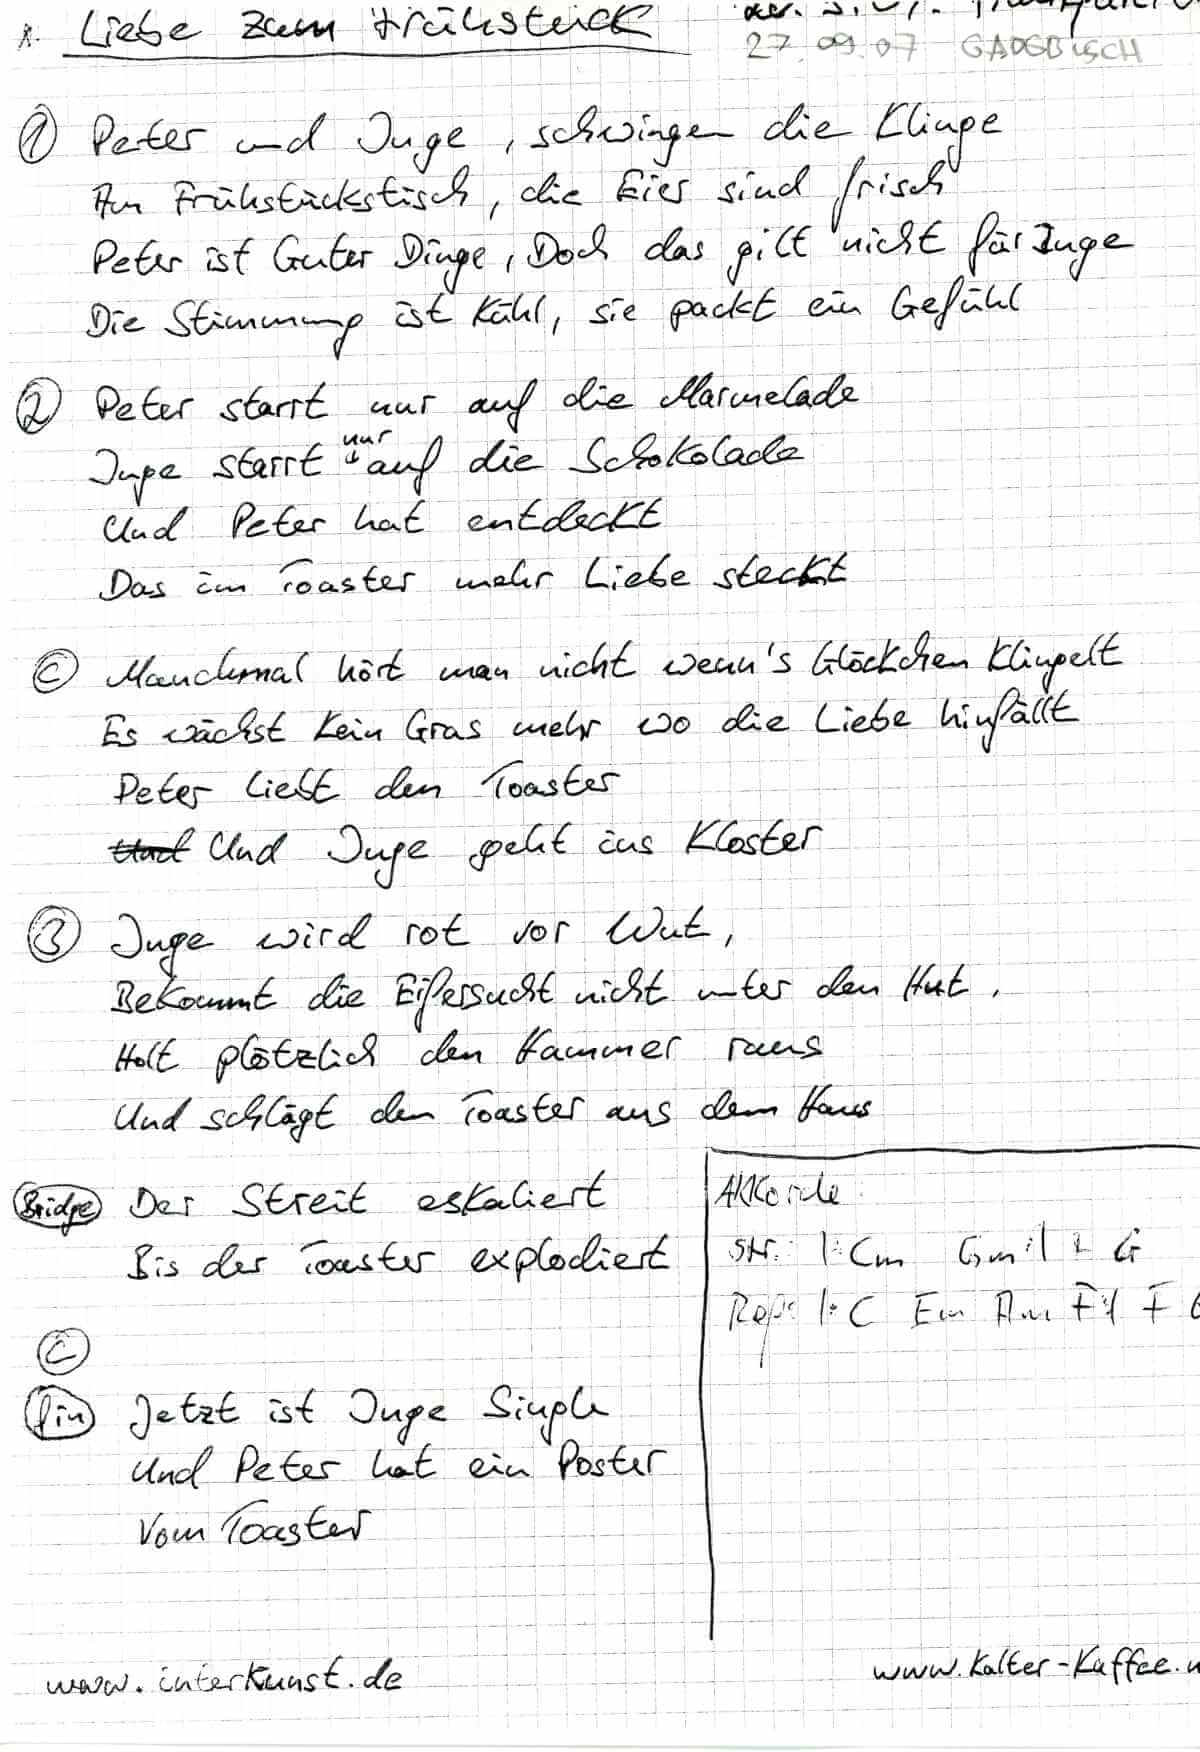 Liebe zum Frühstück
27.09.07 GADEBUSCH
① Peter und Inge, schwingen die Klinge
Am Frühstückstisch, die Eier sind frisch
Peter ist Guter Dinge, Doch das gilt nicht für Inge
Die Stimmung ist Kühl, sie packt ein Gefühl
② Peter starrt nur auf die Marmelade
Inge starrt nur auf die Schokolade
Und Peter hat entdeckt
Das im Toaster mehr Liebe steckt
Ⓒ Manchmal hört man nicht wenn's Glöckchen Klingelt
Es wächst Kein Gras mehr wo die Liebe hinfällt
Peter liebt den Toaster
Und Und Inge geht ins Kloster
③ Inge wird rot vor Wut,
Bekommt die Eifersucht nicht unter den Hut.
Holt plötzlich den Hammer raus
Und schlägt den Toaster aus dem Haus
Bridge Der Streit eskaliert
Bis der Toaster explodiert
Ⓒ
Fin Jetzt ist Inge Single
Und Peter hat ein Poster
Vom Toaster
Akkorde:
Str. |: Cm Gm :| G
Ref: |: C Em Am F :| F G
www.interkunst.de
www.Kalter-Kaffee.n